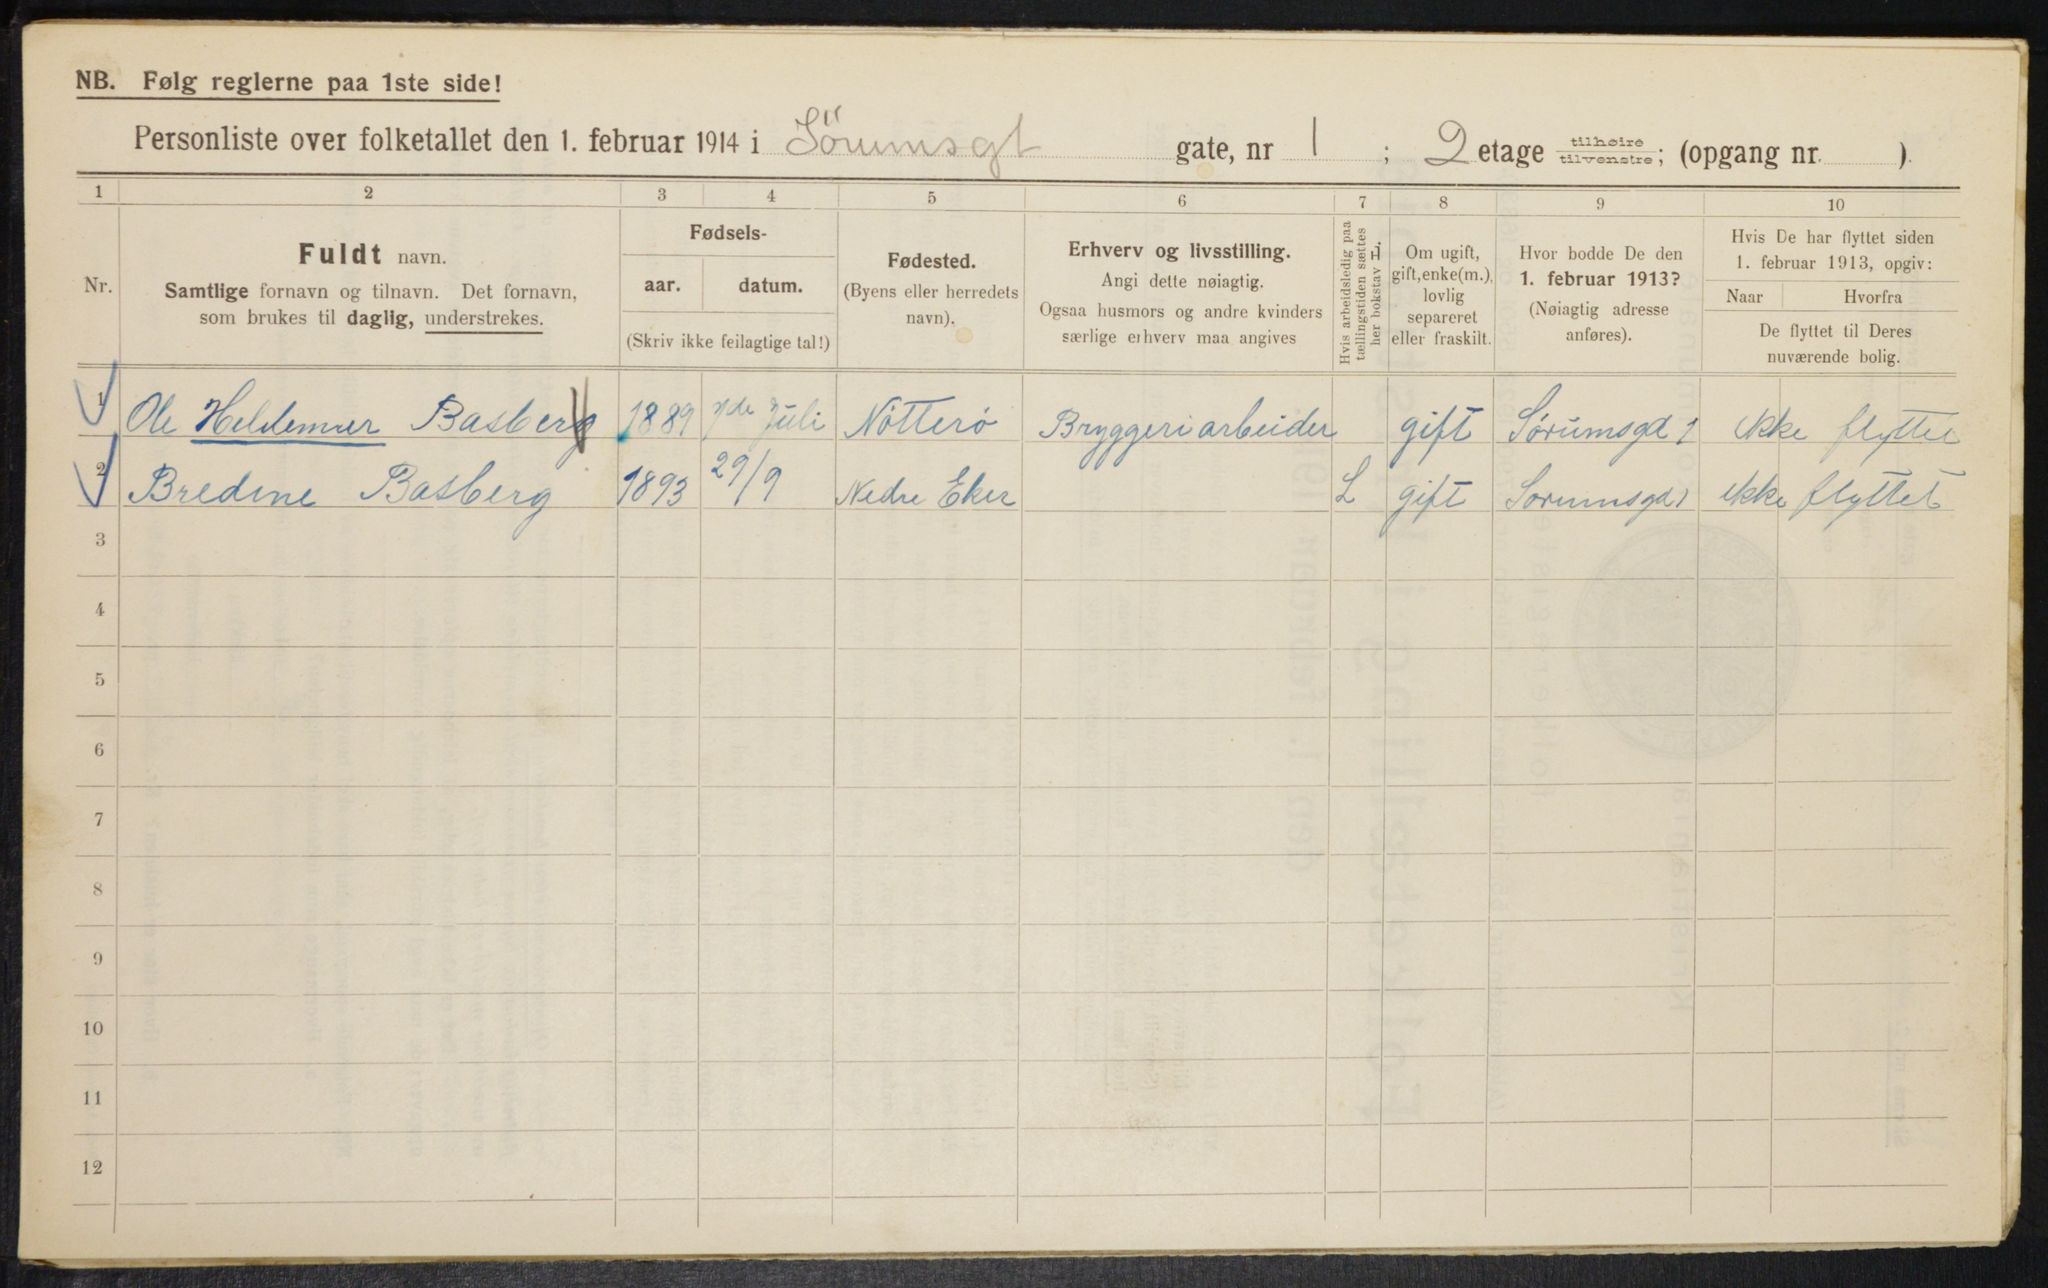 NB. Følg reglerne paa 1ste side!
Personliste over folketallet den 1. februar 1914 i Sörumsgt gate, nr 1 ; 2 etage tilhøire/tilvenstre; (opgang nr. ).
1 2 3 4 5 6 7 8 9 10
Nr.
Fuldt navn.
Samtlige fornavn og tilnavn. Det fornavn,
som brukes til daglig, understrekes.
Fødsels-
aar. datum.
(Skriv ikke feilagtige tal!)
Fødested.
(Byens eller herredets
navn).
Erhverv og livsstilling.
Angi dette nøiagtig.
Ogsaa husmors og andre kvinders
særlige erhverv maa angives
Hvis arbeidsledig paa
tællingstiden sættes
her bokstav L.
Om ugift,
gift, enke(m.),
lovlig
separeret
eller fraskilt.
Hvor bodde De den
1. februar 1913?
(Nøiagtig adresse
anføres).
Hvis De har flyttet siden
1. februar 1913, opgiv:
Naar Hvorfra
De flyttet til Deres
nuværende bolig.
1 Ole Heldemar Basberg 1889 7de Juli Nötterö Bryggeriarbeider gift Sørumsgd 1 ikke flyttet
2 Bredine Basberg 1893 29/9 Nedre Eker L gift Sorumsgd 1 ikke flyttet
3
4
5
6
7
8
9
10
11
12